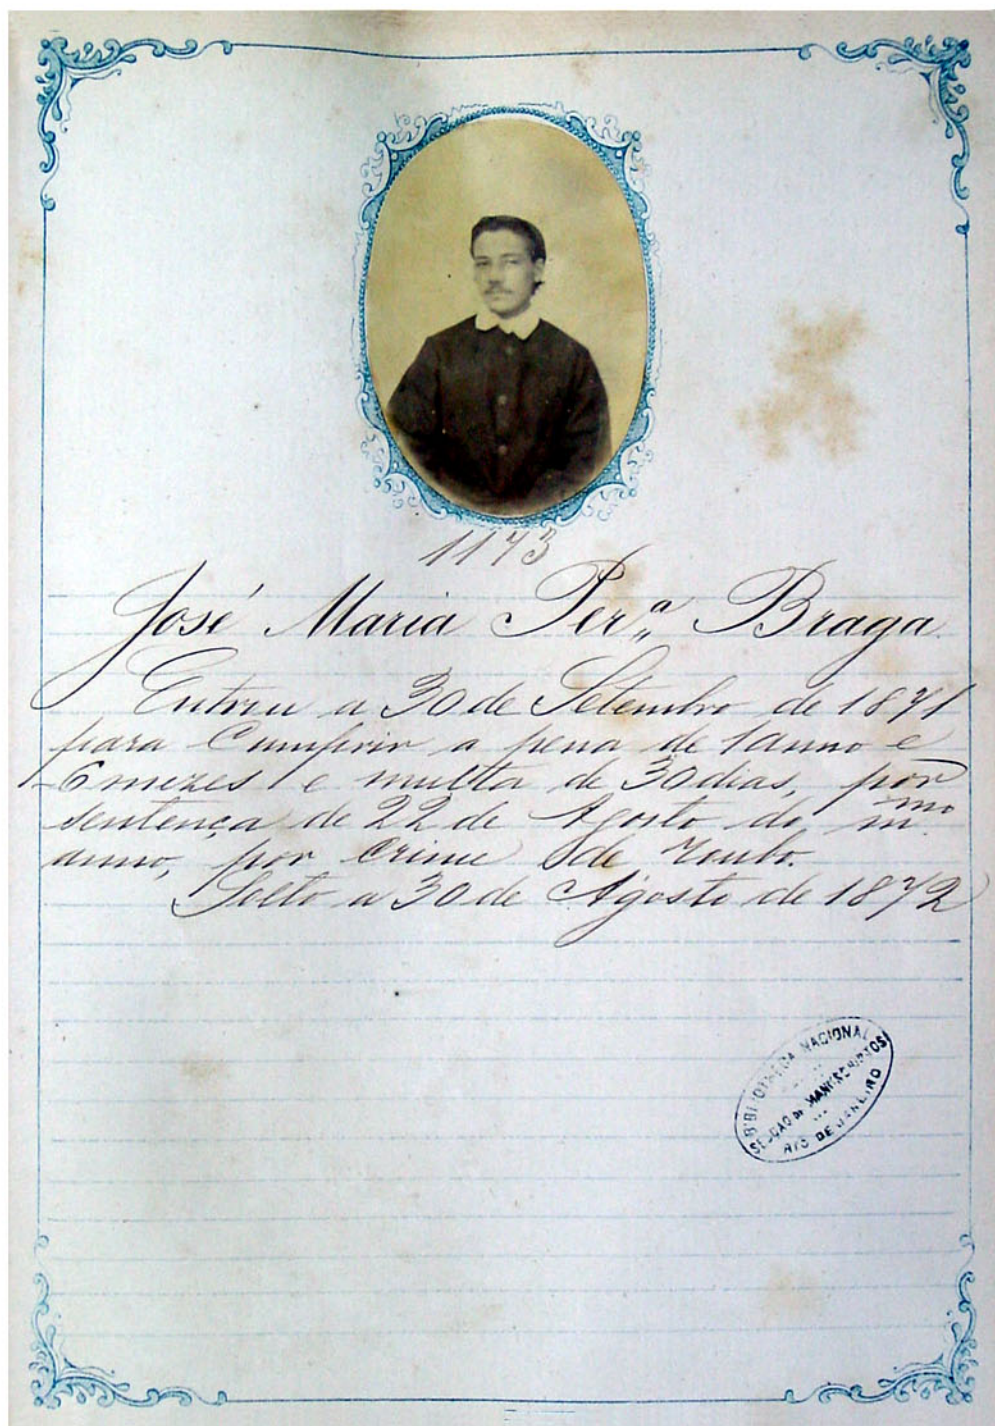 1173
José Maria Per.ª Braga
Entrou a 30 de Setembro de 1871
para Cumprir a pena de 1 anno e
6 mezes e multa de 30 dias, por
sentença de 22 de Agosto do m.mo
anno, por crime de roubo.
Solto a 30 de Agosto de 1872
BIBLIOTHECA NACIONAL
SECÇÃO DE MANUSCRIPTOS
RIO DE JANEIRO